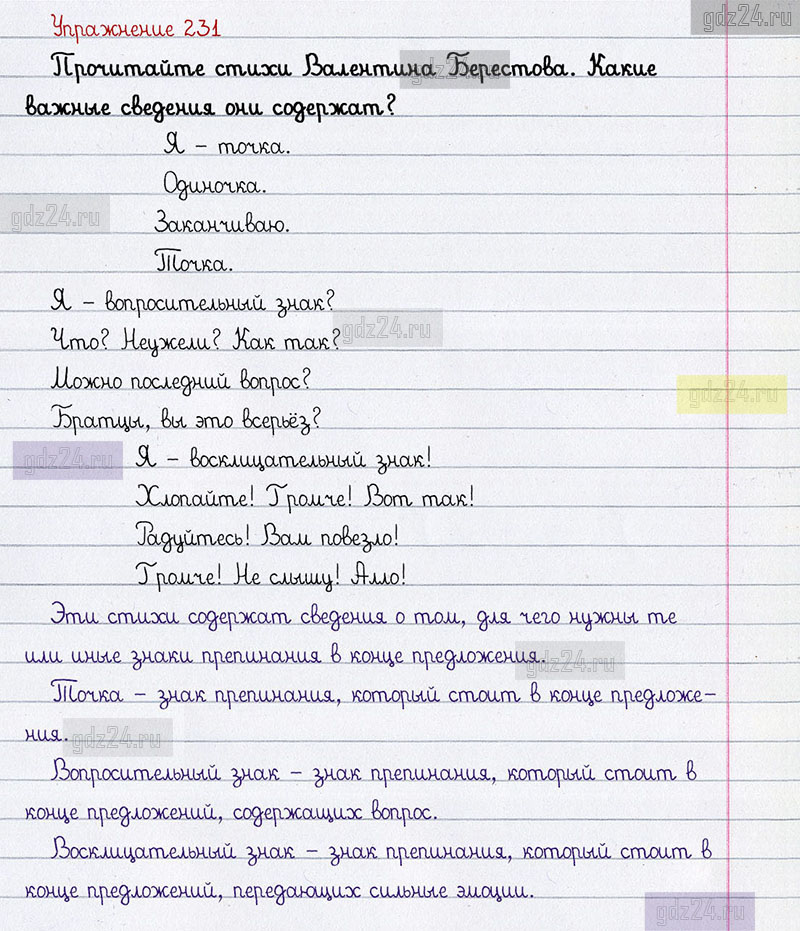 gdz24.ru
Упражнение 231
Прочитайте стихи Валентина Берестова. Какие
gdz24.ru
важные сведения они содержат?
Я – точка.
Одиночка.
gdz24.ru
Заканчиваю.
Точка.
Я – вопросительный знак?
gdz24.ru
Что? Неужели? Как так?
Можно последний вопрос?
gdz24.ru
Братцы, вы это всерьёз?
gdz24.ru
Я – восклицательный знак!
Хлопайте! Громче! Вот так!
Радуйтесь! Вам повезло!
Громче! Не слышу! Алло!
Эти стихи содержат сведения о том, для чего нужны те
или иные знаки препинания в конце предложения.
gdz24.ru
Точка – знак препинания, который стоит в конце предложе-
ния.
gdz24.ru
Вопросительный знак – знак препинания, который стоит в
конце предложений, содержащих вопрос.
Восклицательный знак – знак препинания, который стоит в
конце предложений, передающих сильные эмоции.
gdz24.ru